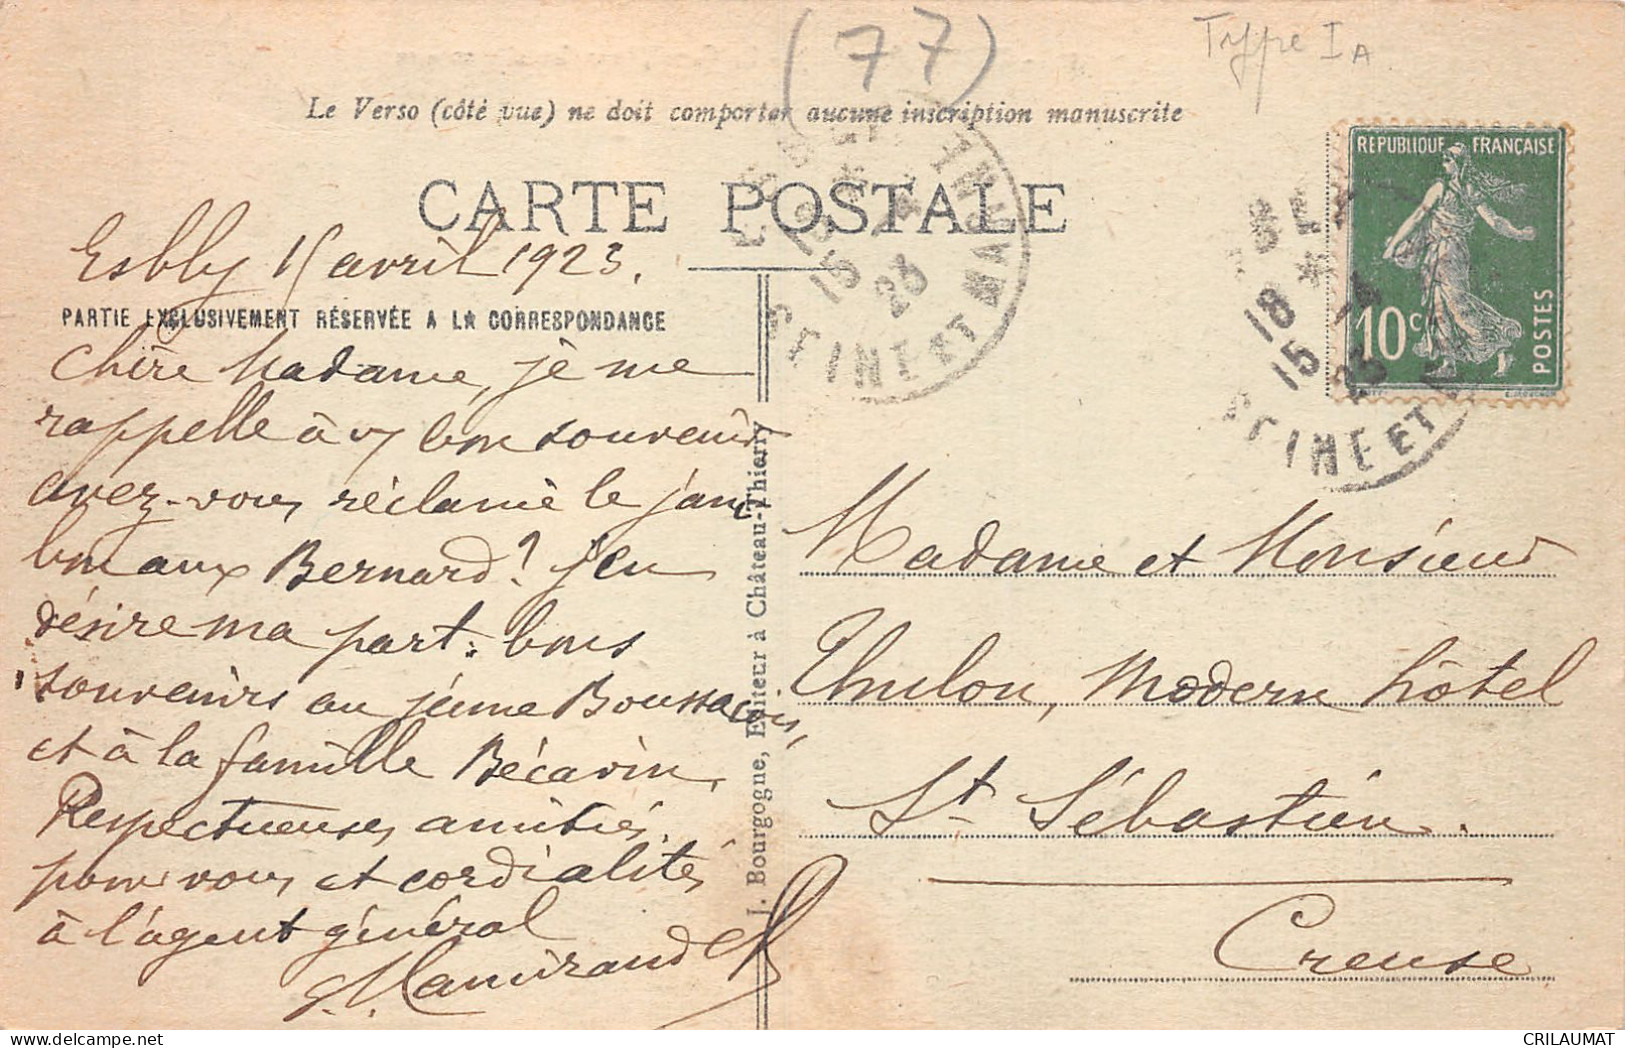 (77)
Type IA
Le Verso (côté vue) ne doit comporter aucune inscription manuscrite
CARTE POSTALE
REPUBLIQUE FRANÇAISE
10c
POSTES
18
15 -4
23
SEINE ET M
ESBLY
18
15 -4
23
SEINE ET MARNE
Esbly 15 avril 1923.
PARTIE EXCLUSIVEMENT RÉSERVÉE A LA CORRESPONDANCE
Chère Madame, je me
rappelle à v/ bon souvenir
avez-vous réclamé le jam
bon aux Bernard? j'en
désire ma part. bons
souvenirs au jeune Boussac
et à la famille Bécavin,
Respectueuses amitiés
pour vous et cordialités
à l'agent général
J. Bourgogne, Editeur à Château-Thierry
Madame et Monsieur
Thulon, Modern hôtel
St Sébastien.
Creuse
CRILAUMAT